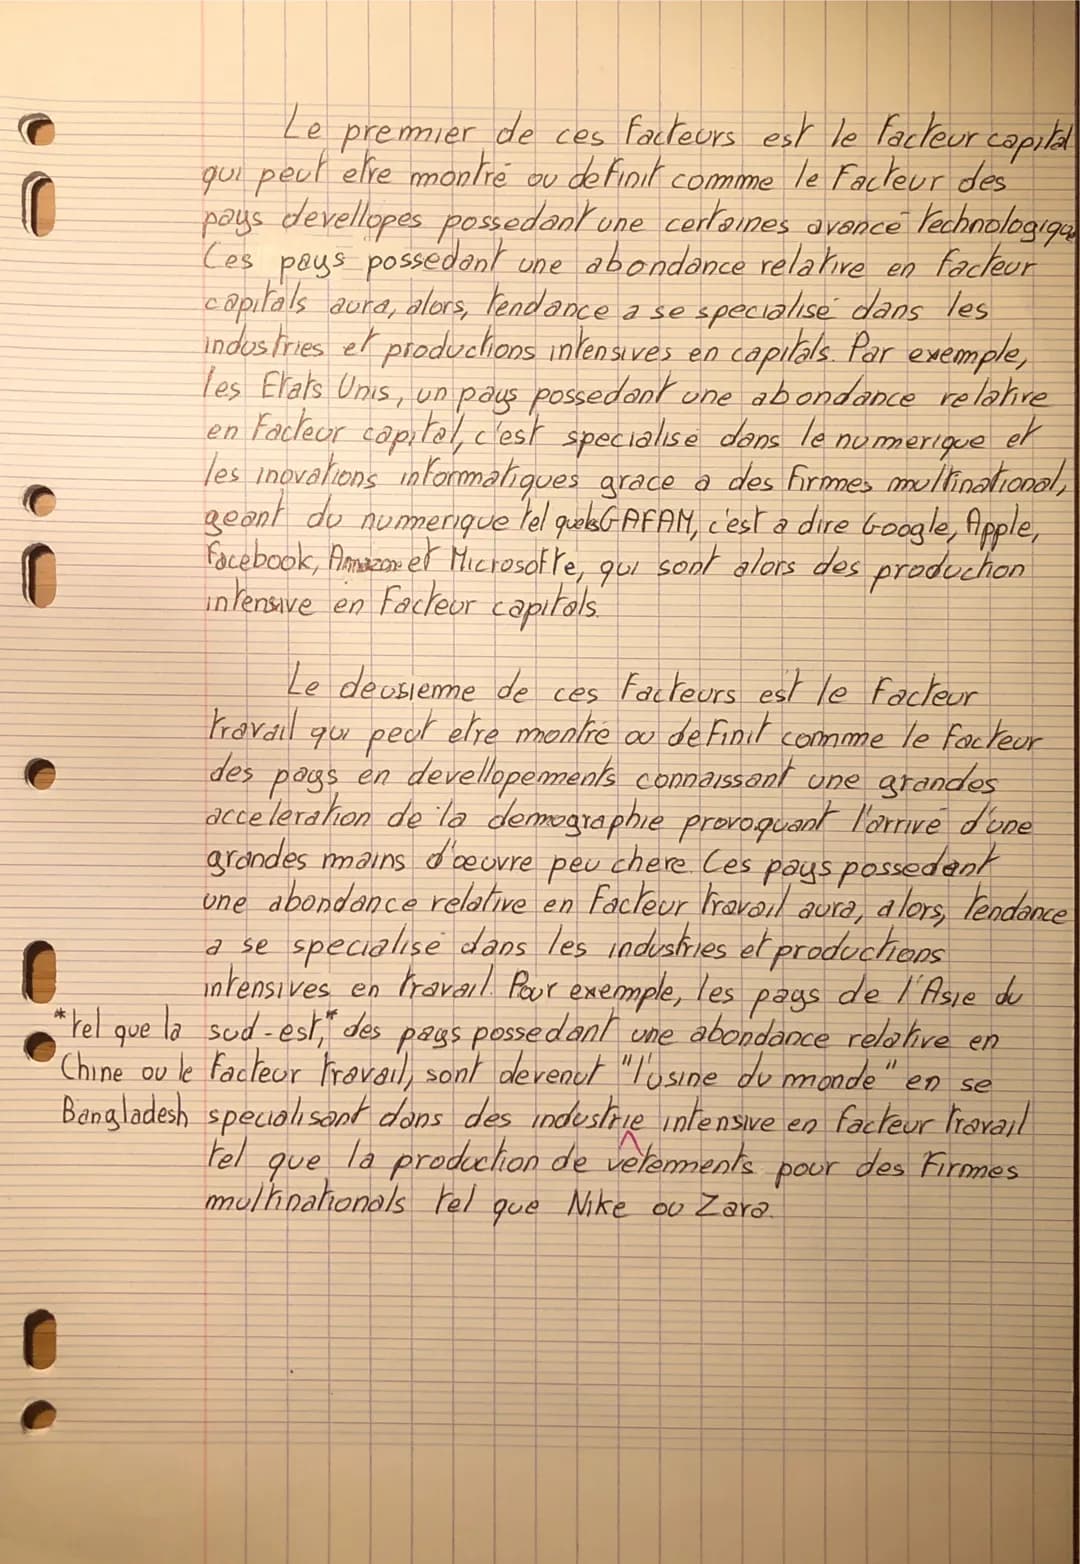 Le premier de ces facteurs est le facteur capital
qui peut etre montré ou definit comme le facteur des
pays devellopes possedant une certaines avancé technologique
Ces pays possedant une abondance relative en facteur
capitals aura, alors, tendance a se specialisé dans les
industries et productions intensives en capitals. Par exemple,
les Etats Unis, un pays possedant une abondance relative
en facteur capital, c'est specialisé dans le numerique et
les inovations informatiques grace a des firmes multinational,
geant du numerique tel quels GAFAM, c'est a dire Google, Apple,
Facebook, Amazone et Microsofte, qui sont alors des production
intensive en facteur capitals.
Le deusieme de ces facteurs est le facteur
travail qui peut etre montré ou definit comme le facteur
des pays en devellopements connaissant une grandes
acceleration de la demographie provoquant l'arrivé d'une
grandes mains d'œuvre peu chere. Ces pays possedent
une abondance relative en facteur travail aura, alors, tendance
a se specialisé dans les industries et productions
intensives en travail. Pour exemple, les pays de l'Asie du
sud-est,* des pays possedant une abondance relative en
facteur travail, sont devenut "l'usine du monde" en se
specialisant dans des industrie intensive en facteur travail
tel que la production de vêtements pour des firmes
multinationals tel que Nike ou Zara.
*tel que la
Chine ou le
Bangladesh